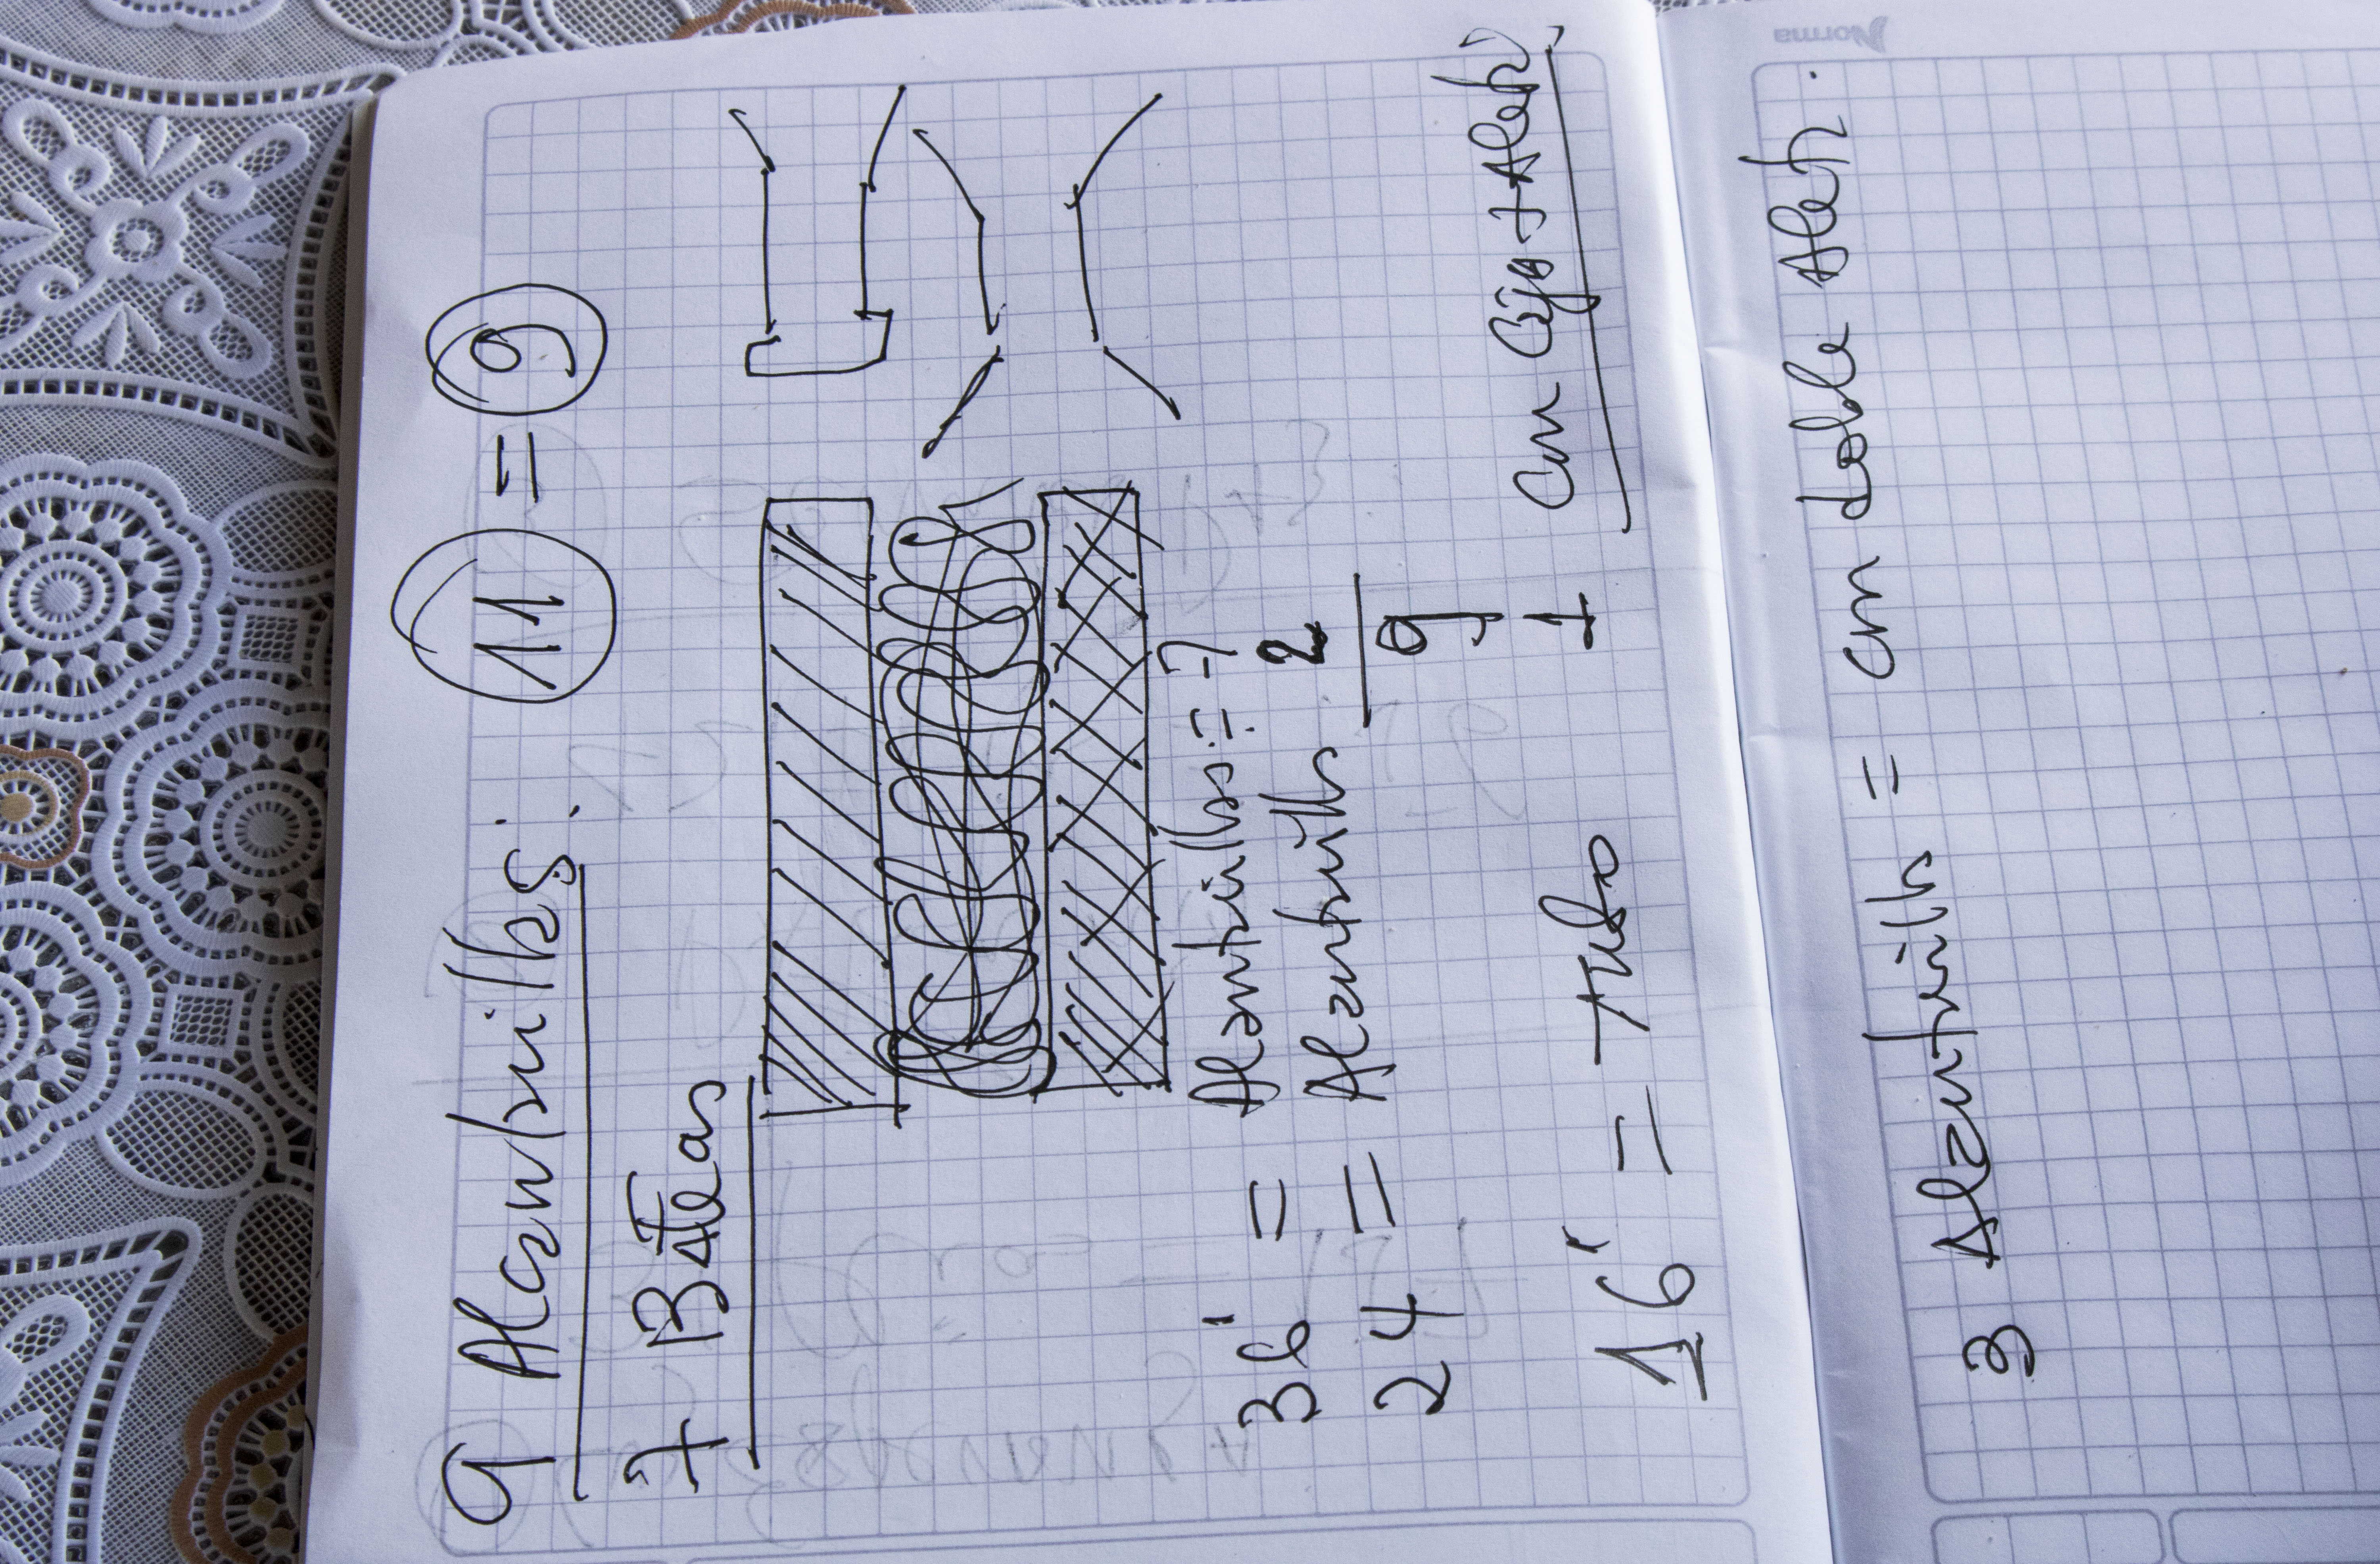 9 Alcantarillas: 11 = 9
7 Bateas
36" = Alcantarillas = 7
24 = Alcantarilla 2
9
16" = tubo 1 con Caja + Aleta
Norma
3 Alcantarilla = con doble Aleta.